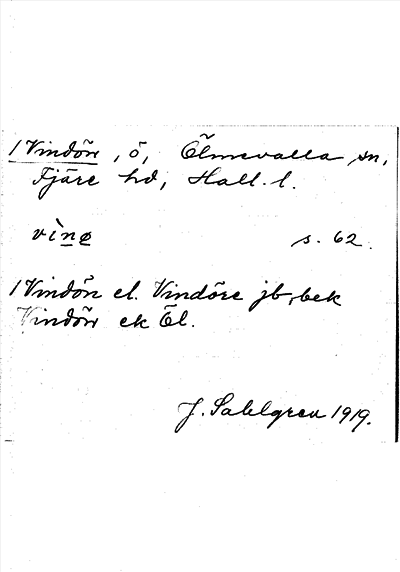 1 Vindön, ö, Ölmevalla sn,
Fjäre hd, Hall. l.
vìnø s. 62.
1 Vindön el. Vindöre jb, bek
Vindön ek Öl.
J. Sahlgren 1919.